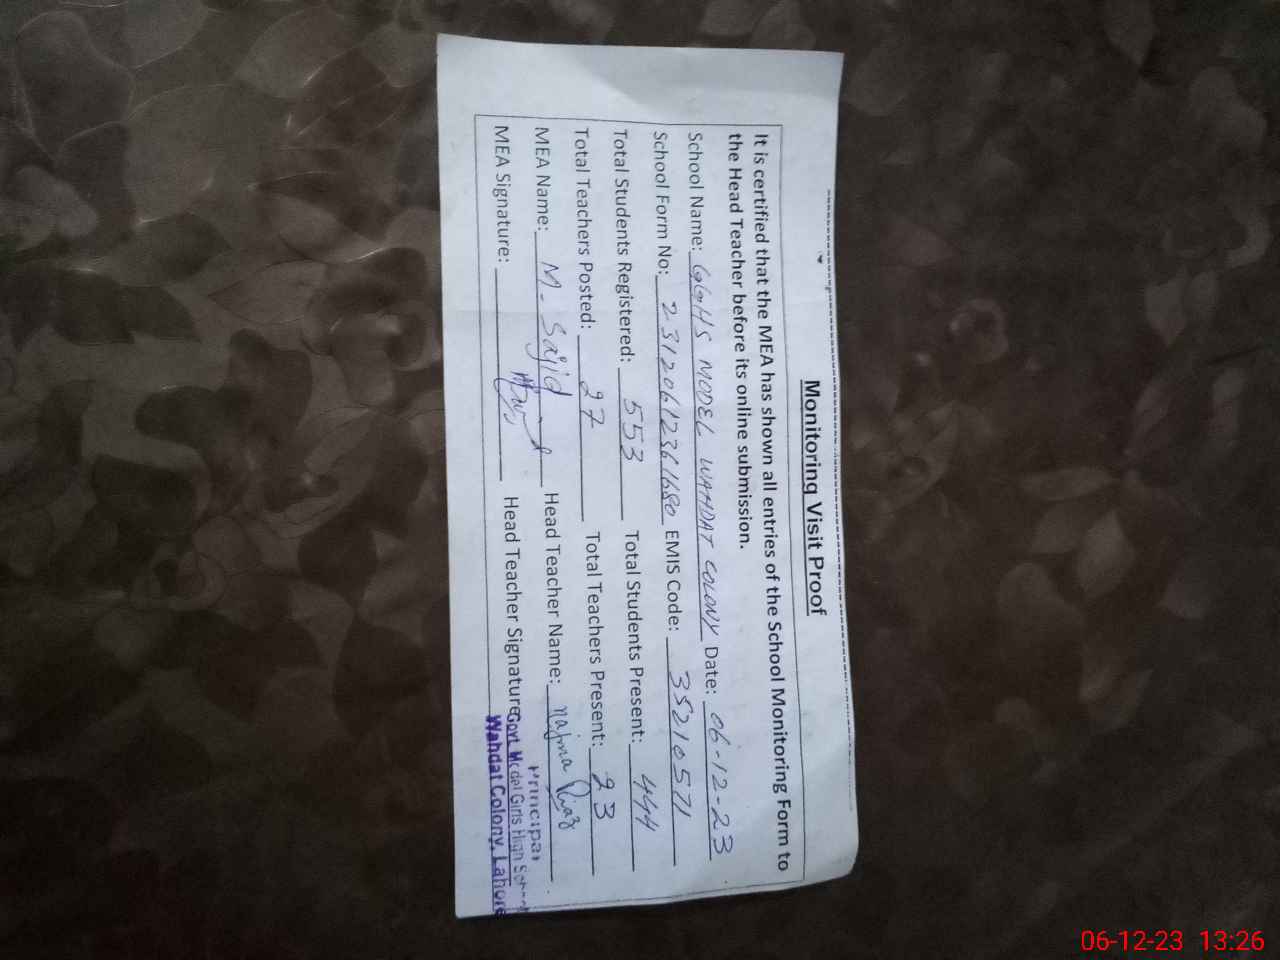 Monitoring Visit Proof
It is certified that the MEA has shown all entries of the School Monitoring Form to
the Head Teacher before its online submission.
School Name: GGHS MODEL WAHDAT COLONY Date: 06-12-23
School Form No: 23120612361680 EMIS Code: 35210571
Total Students Registered: 553 Total Students Present: 444
Total Teachers Posted: 27 Total Teachers Present: 23
MEA Name: M. Sajid Head Teacher Name: Najma Riaz
MEA Signature: Head Teacher Signature
Principal
Govt. Model Girls High School
Wahdat Colony, Lahore
06-12-23 13:26